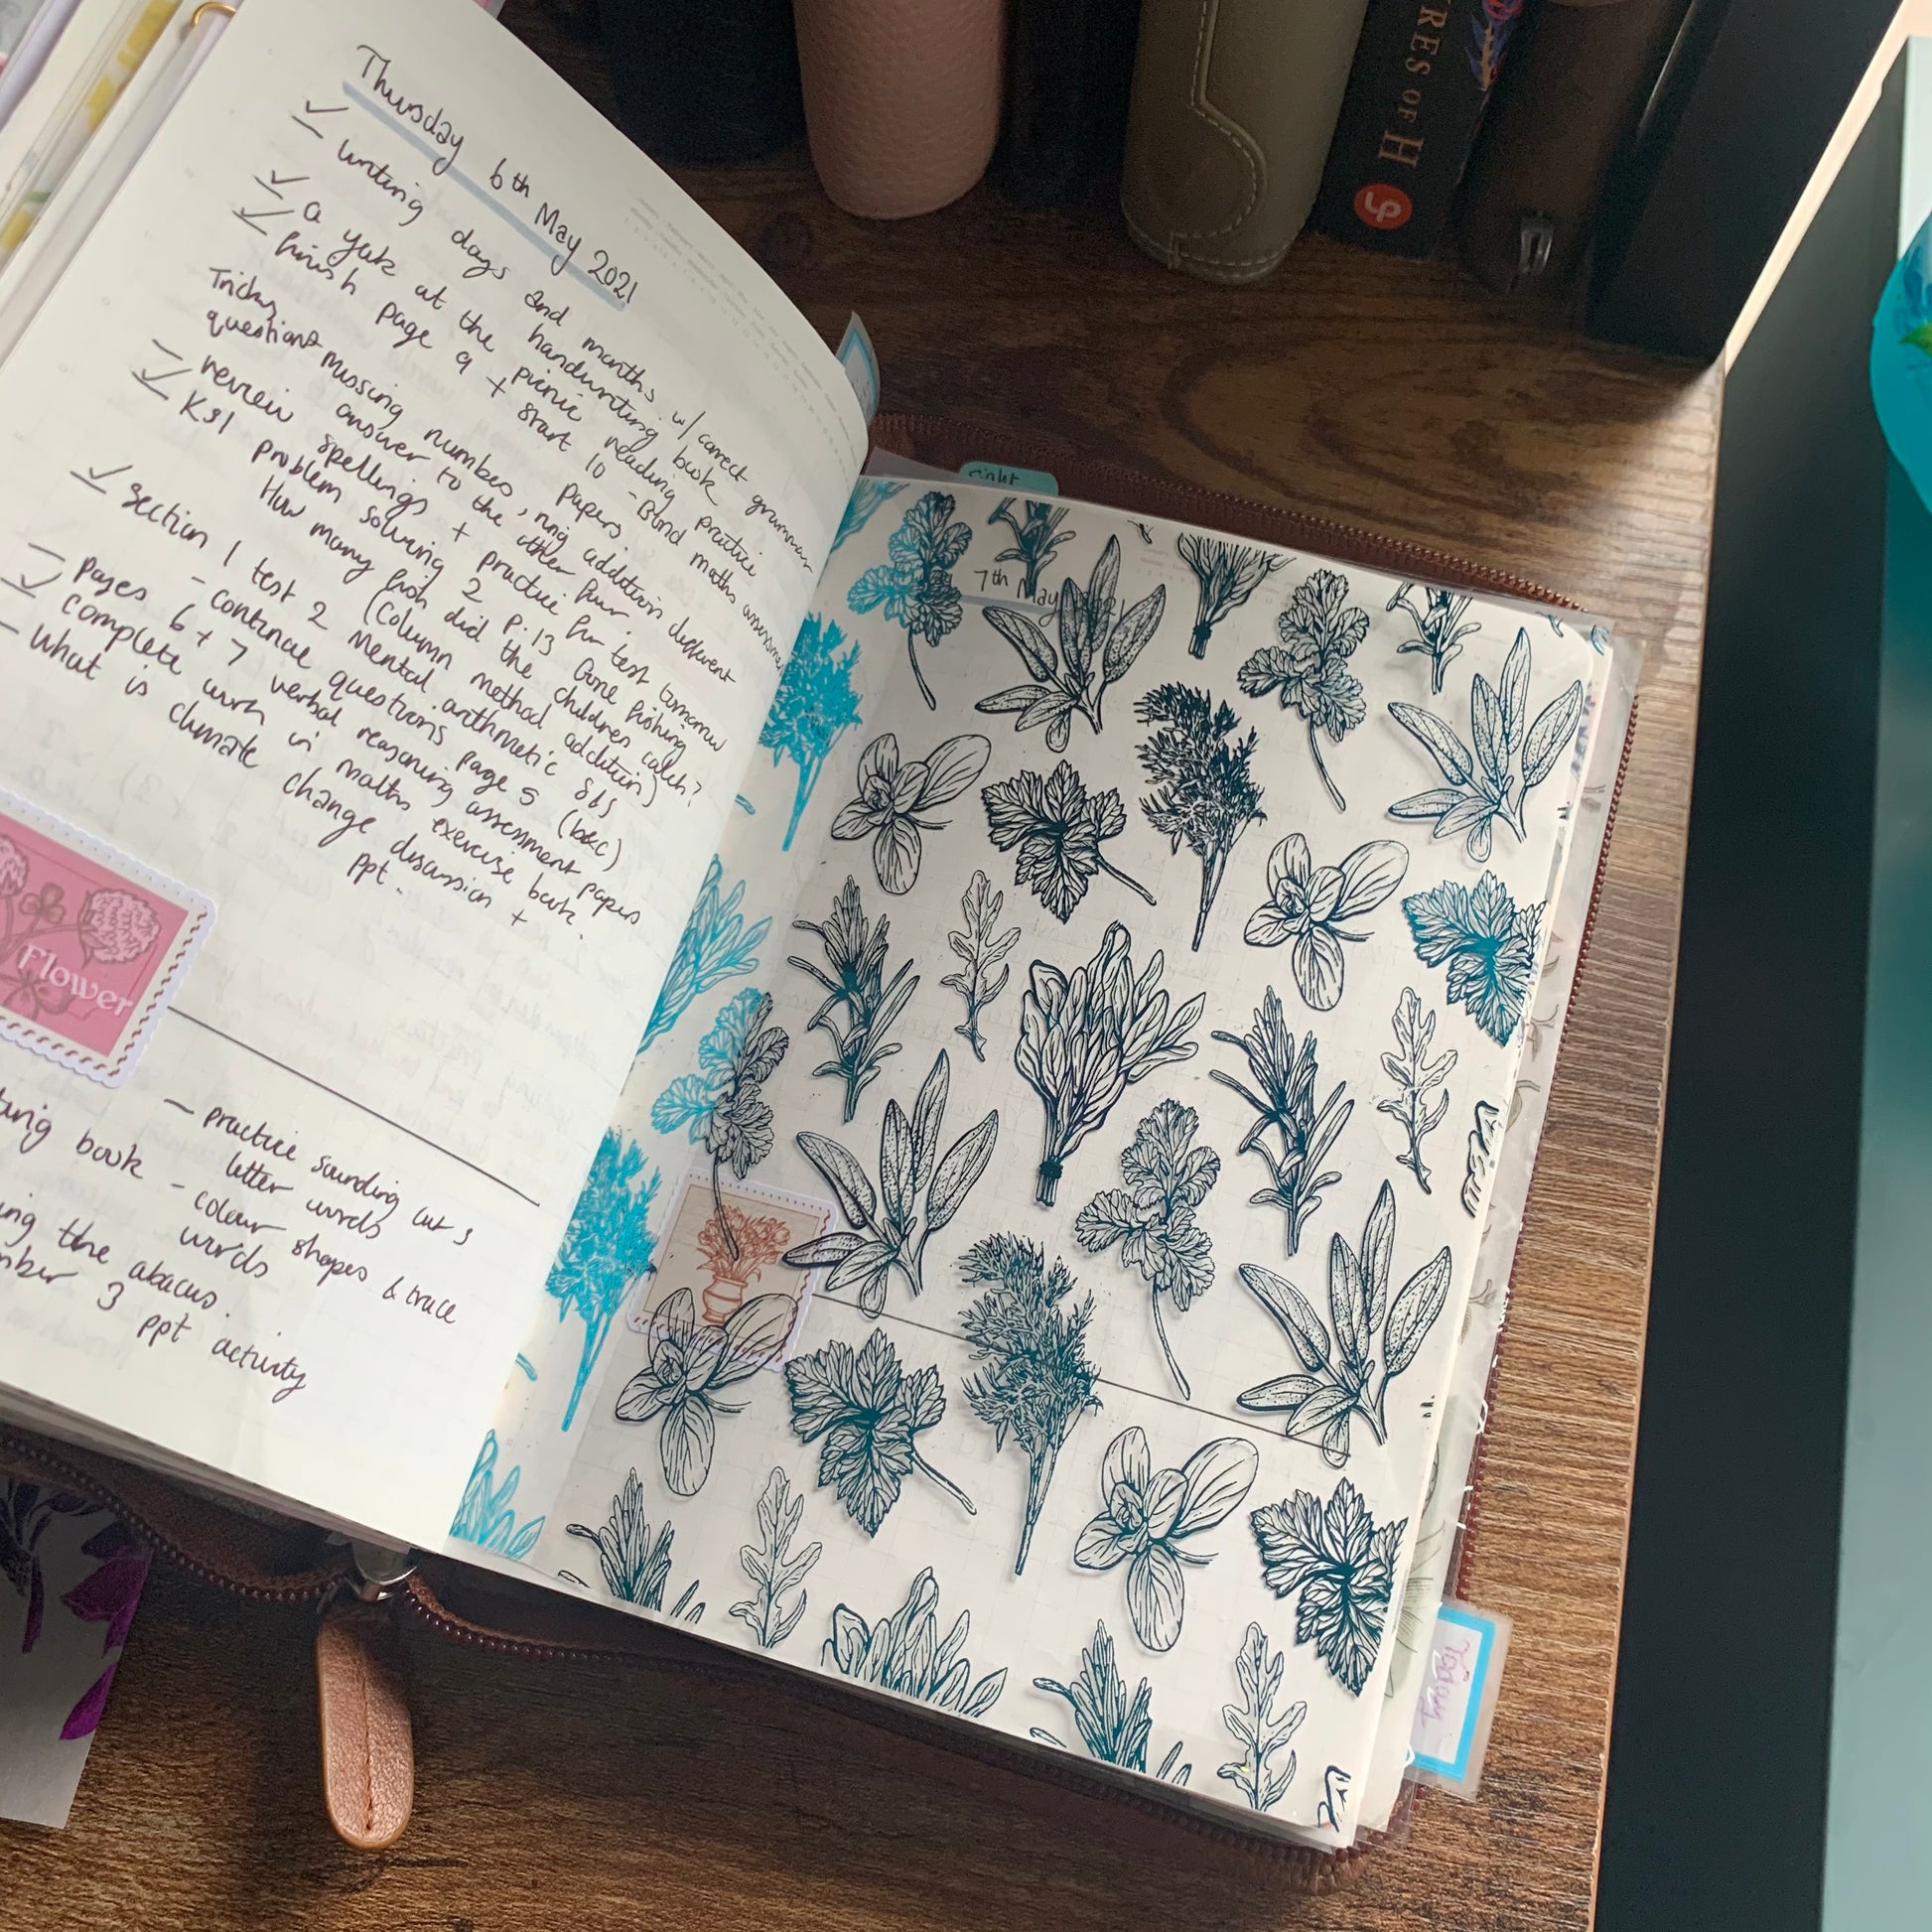 Thursday 6th May 2021
writing days and months w/ correct grammar
handwriting book
a yak at the picnic reading practice
finish page 9 + start 10 - Bond maths assessment
papers
Tricky missing numbers, addition different
questions answer to the other four.
review spellings + practice for test tomorrow
KS1 problem solving 2 p.13 Gone fishing
How many fish did the children catch?
(column method addition)
Section 1 test 2 Mental arithmetic
- continue questions page 5 (b&c)
Pages 6 + 7 verbal reasoning assessment papers
complete work in maths exercise book.
What is climate change discussion +
ppt.
Flower
- practice sounding out 3
letter words
book - colour shapes & trace
words
the abacus.
3 ppt activity
7th May
RES OF H